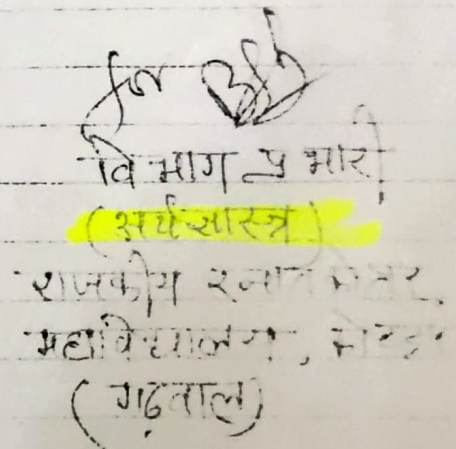 for
विभाग प्रभारी
(अर्थशास्त्र)
राजकीय स्नातकोत्तर
महाविद्यालय,
(गढ़वाल)